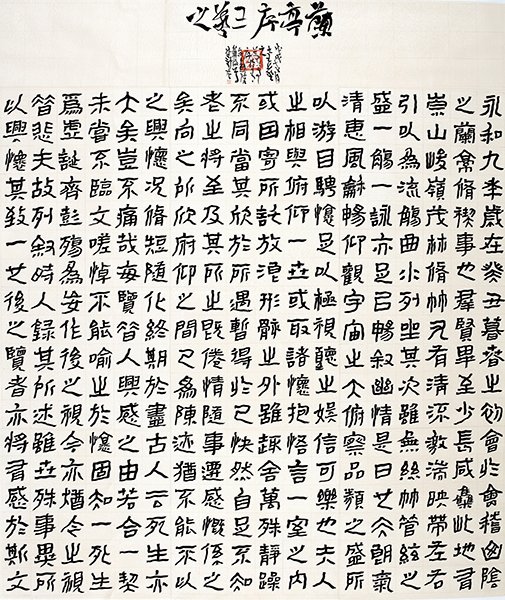 蘭亭序
永和九年歲在癸丑暮春之初會於會稽山陰
之蘭亭脩禊事也羣賢畢至少長咸集此地有
崇山峻嶺茂林脩竹又有清流激湍映帶左右
引以為流觴曲水列坐其次雖無絲竹管絃之
盛一觴一詠亦足以暢敘幽情是日也天朗氣
清惠風龢暢仰觀宇宙之大俯察品類之盛所
以游目騁懷足以極視聽之娛信可樂也夫人
之相與俯仰一世或取諸懷抱悟言一室之內
或因寄所託放浪形骸之外雖趣舍萬殊靜躁
不同當其欣於所遇暫得於己快然自足不知
老之將至及其所之既倦情隨事遷感慨係之
矣向之所欣俯仰之間已為陳迹猶不能不以
之興懷況脩短隨化終期於盡古人云死生亦
大矣豈不痛哉每覽昔人興感之由若合一契
未嘗不臨文嗟悼不能喻之於懷固知一死生
為虛誕齊彭殤為妄作後之視今亦猶今之視
昔悲夫故列敘時人錄其所述雖世殊事異所
以興懷其致一也後之覽者亦將有感於斯文